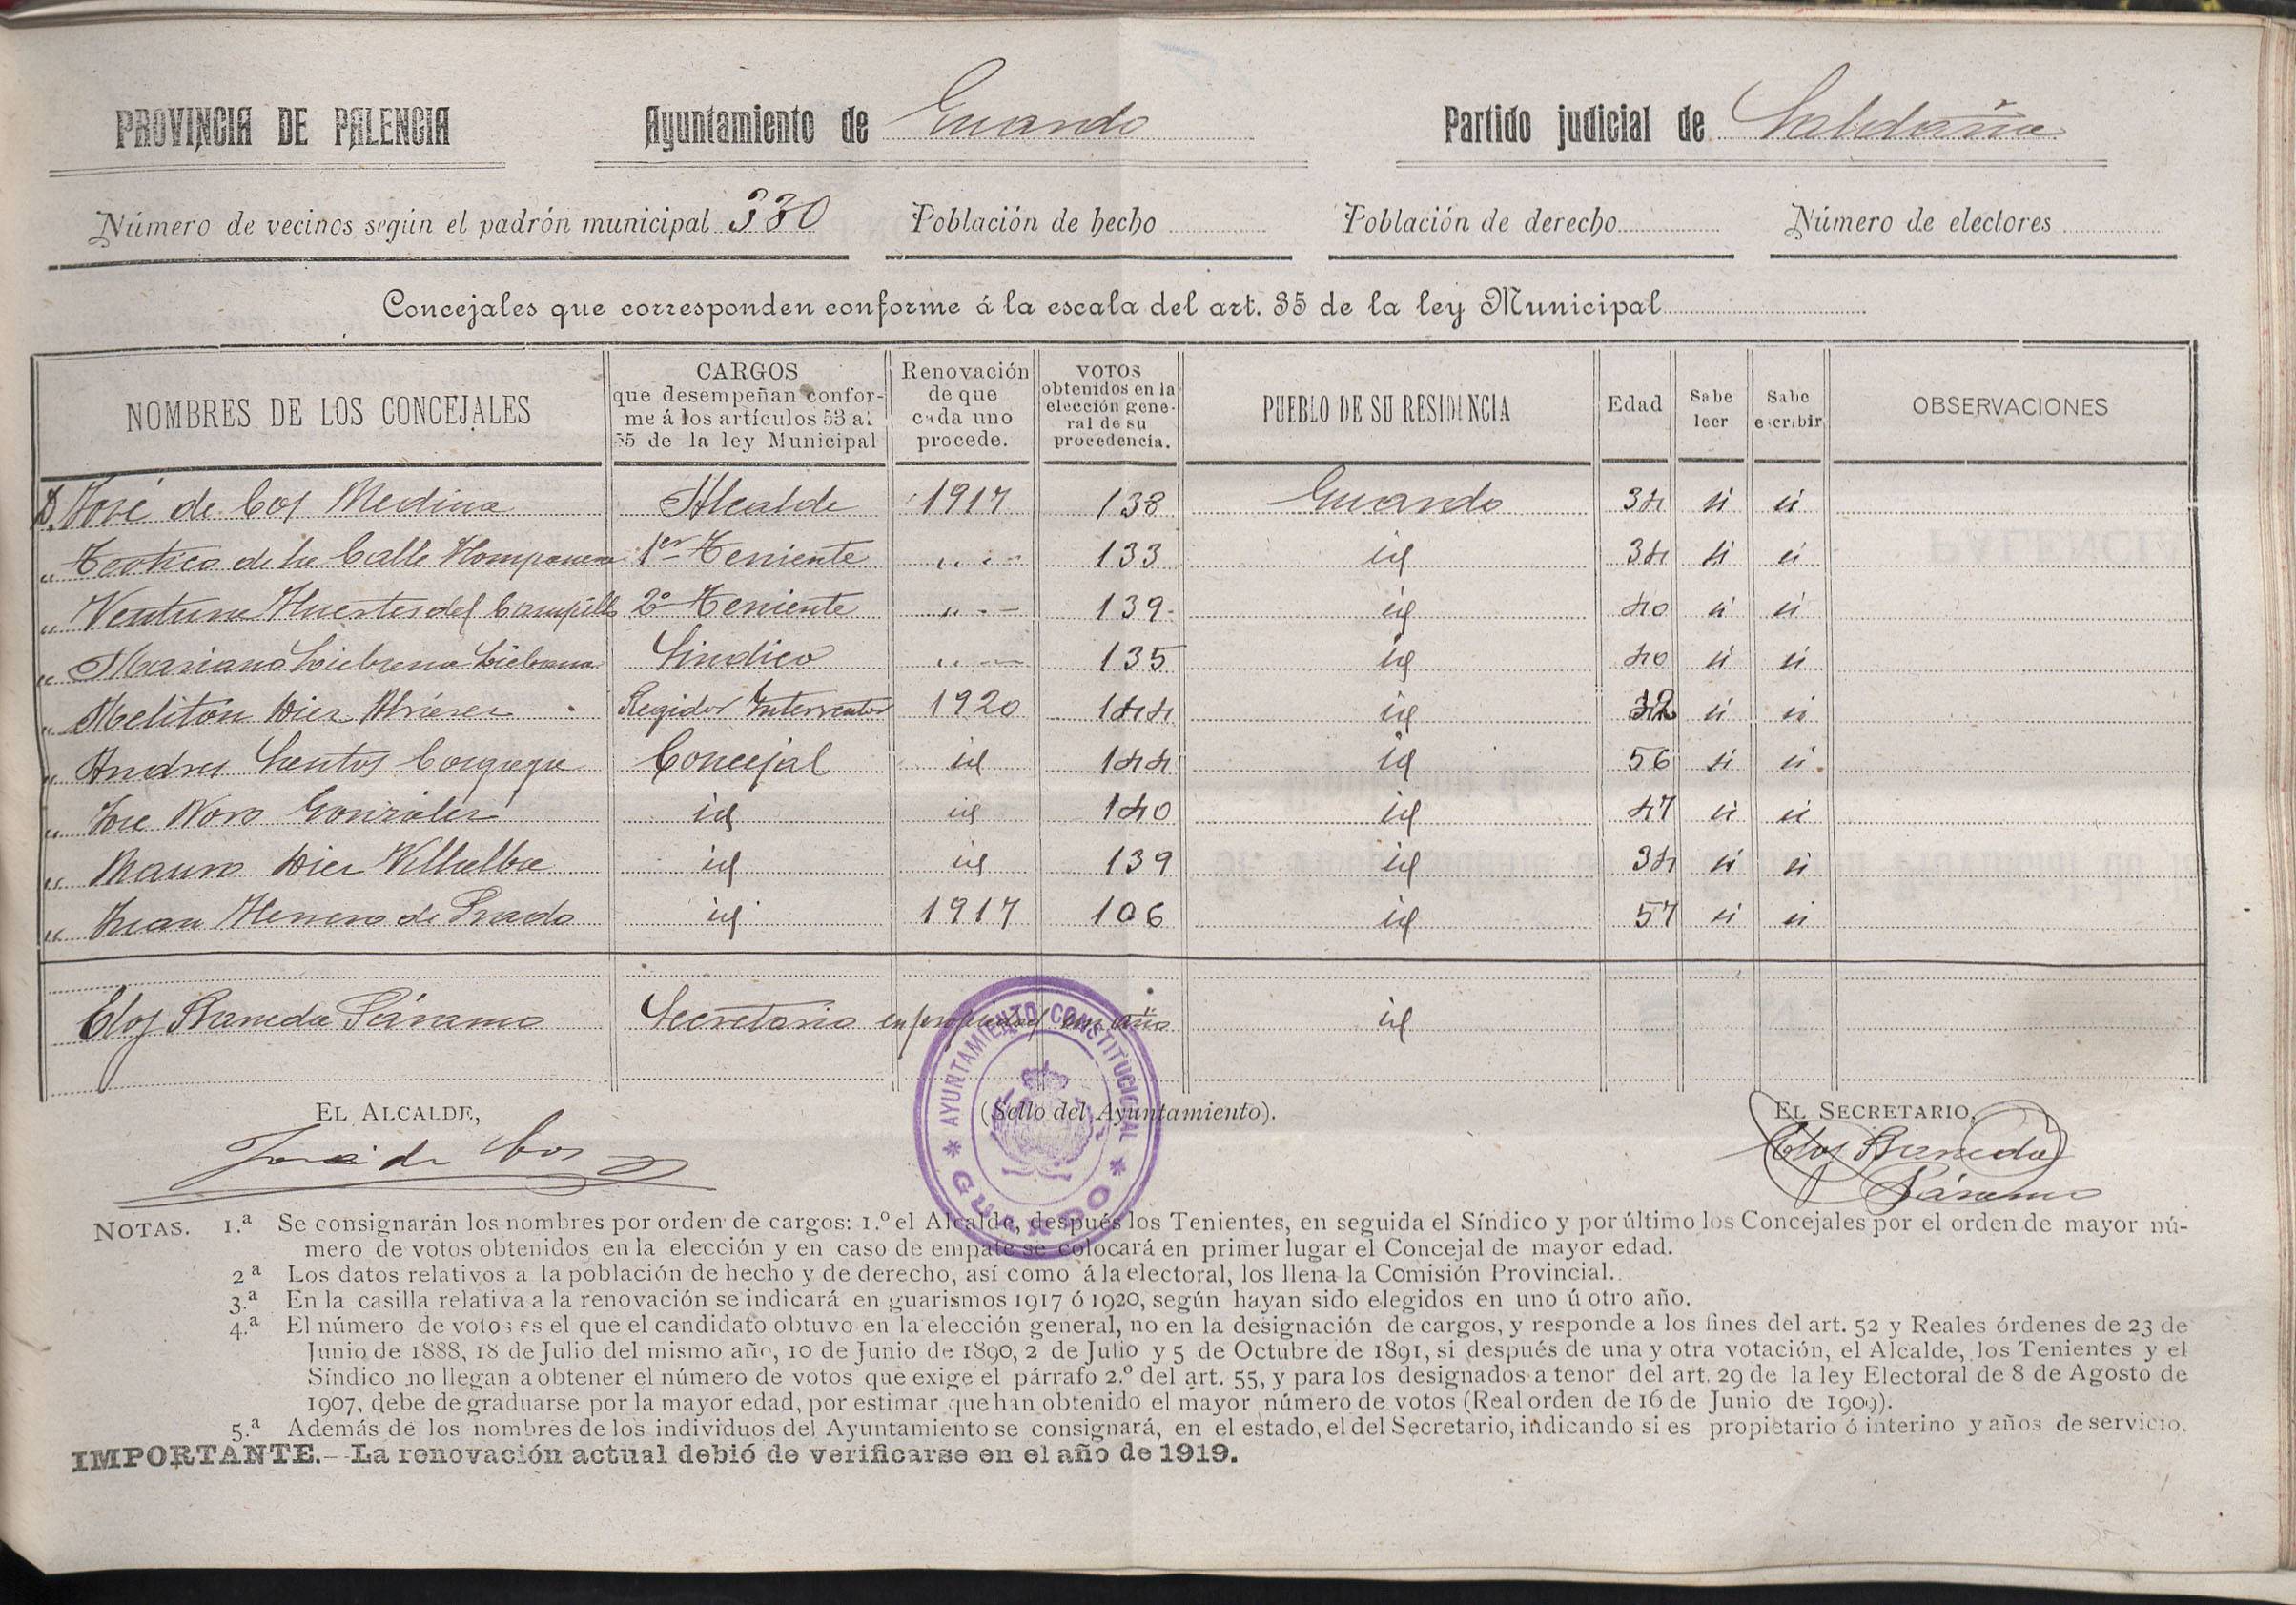 PROVINCIA DE PALENCIA Ayuntamiento de Guardo Partido judicial de Saldaña
Número de vecinos según el padrón municipal 330 Población de hecho Población de derecho Número de electores
Concejales que corresponden conforme á la escala del art. 35 de la ley Municipal
NOMBRES DE LOS CONCEJALES CARGOS que desempeñan conforme á los artículos 53 al 55 de la ley Municipal Renovación de que cada uno procede. VOTOS obtenidos en la elección general de su procedencia. PUEBLO DE SU RESIDENCIA Edad Sabe leer Sabe escribir OBSERVACIONES
D. José de Cos Medina Alcalde 1917 138 Guardo 34 si si
" de la Calle 1er Teniente " " 133 id 34 si si
" Ventura Huertes del Campillo 2º Teniente " " 139 id 40 si si
" Mariano Liebana Liebana Síndico " " 135 id 40 si si
" Melitón Diez Regidor Interventor 1920 144 id 32 si si
" Andres Santos Concejal id 144 id 56 si si
" Jose Novo González id id 140 id 47 si si
" Mauro Diez Villalba id id 139 id 34 si si
" Juan Herrero de Prado id 1917 106 id 57 si si
Eloy Baneda Páramo Secretario en propiedad un año id
EL ALCALDE, (Sello del Ayuntamiento). EL SECRETARIO,
José de Cos
Eloy Baneda
Páramo
AYUNTAMIENTO CONSTITUCIONAL * GUARDO *
NOTAS. 1.ª Se consignarán los nombres por orden de cargos: 1.º el Alcalde, después los Tenientes, en seguida el Síndico y por último los Concejales por el orden de mayor nú-
mero de votos obtenidos en la elección y en caso de empate se colocará en primer lugar el Concejal de mayor edad.
2ª Los datos relativos a la población de hecho y de derecho, así como á la electoral, los llena la Comisión Provincial.
3.ª En la casilla relativa a la renovación se indicará en guarismos 1917 ó 1920, según hayan sido elegidos en uno ú otro año.
4.ª El número de votos es el que el candidato obtuvo en la elección general, no en la designación de cargos, y responde a los fines del art. 52 y Reales órdenes de 23 de
Junio de 1888, 18 de Julio del mismo año, 10 de Junio de 1890, 2 de Julio y 5 de Octubre de 1891, si después de una y otra votación, el Alcalde, los Tenientes y el
Síndico no llegan a obtener el número de votos que exige el párrafo 2.º del art. 55, y para los designados a tenor del art. 29 de la ley Electoral de 8 de Agosto de
1907, debe de graduarse por la mayor edad, por estimar que han obtenido el mayor número de votos (Real orden de 16 de Junio de 1909).
5.ª Además de los nombres de los individuos del Ayuntamiento se consignará, en el estado, el del Secretario, indicando si es propietario ó interino y años de servicio.
IMPORTANTE.—La renovación actual debió de verificarse en el año de 1919.